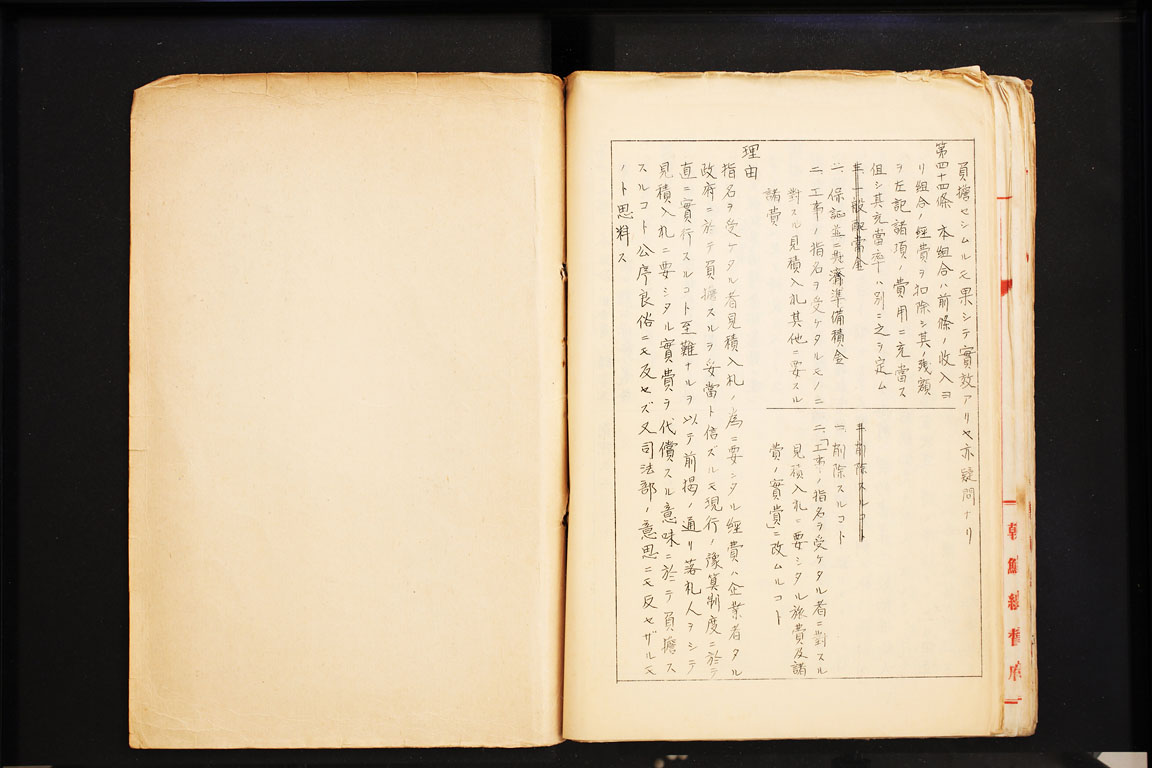 負擔セシムルモ果シテ實效アリヤ亦疑問ナリ
第四十四條 本組合ハ前條ノ收入ヨ
リ組合ノ經費ヲ扣除シ其ノ残額
ヲ左記諸項ノ費用ニ充當ス
但シ其充當率ハ別ニ之ヲ定ム
一般配當金
一、保証並ニ共濟準備積金
二、工事ノ指名ヲ受ケタルモノニ
對スル見積入札其他ニ要スル
諸費
削除スルコト
一、削除スルコト
二、「工事ノ指名ヲ受ケタル者ニ對スル
見積入札ニ要シタル旅費及諸
費ノ實費」ニ改ムルコト
理由
指名ヲ受ケタル者見積入札ノ為ニ要シタル經費ハ企業者タル
政府ニ於テ負擔スルヲ妥當ト信ズルモ現行ノ豫算制度ニ於テ
直ニ實行スルコト至難ナルヲ以テ前揭ノ通リ落札人ヲシテ
見積入札ニ要シタル實費ヲ代償スル意味ニ於テ負擔ス
スルコト公序良俗ニモ反セズ又司法部ノ意思ニモ反セザルモ
ノト思料ス
朝鮮總督府